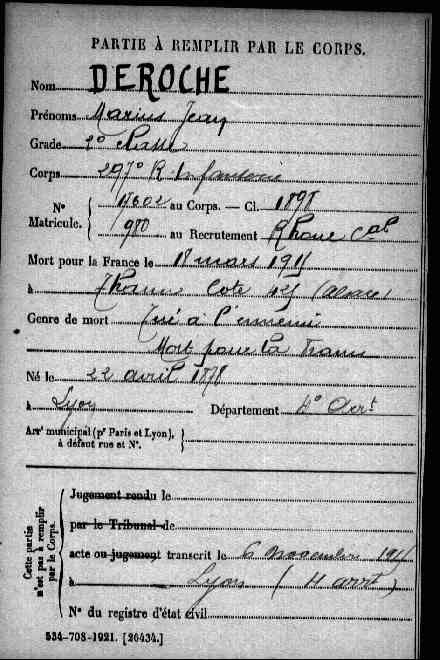 PARTIE À REMPLIR PAR LE CORPS.
Nom DEROCHE
Prénoms Marius Jean
Grade 2e classe
Corps 297e R. Infanterie
N° Matricule. 17602 au Corps. — Cl. 1898
980 au Recrutement Rhone Cal
Mort pour la France le 18 mars 1915
à Thann Cote 425 (Alsace)
Genre de mort Tué à l'ennemi
Mort pour la France
Né le 22 avril 1878
à Lyon Département 4e Arrt
Arrt municipal (pr Paris et Lyon), à défaut rue et N°.
Cette partie n'est pas à remplir par le Corps.
Jugement rendu le
par le Tribunal de
acte ou jugement transcrit le 6 novembre 1915
à Lyon (4 arrt)
N° du registre d'état civil
534-708-1921. [26434.]